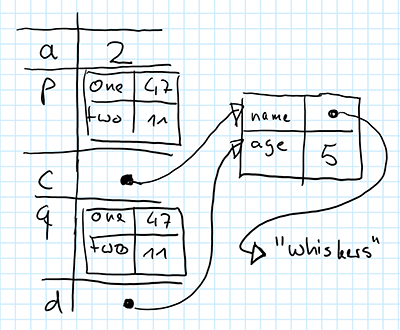 a 2
p one 47
two 11
c
q one 47
two 11
d
name
age 5
"whiskers"